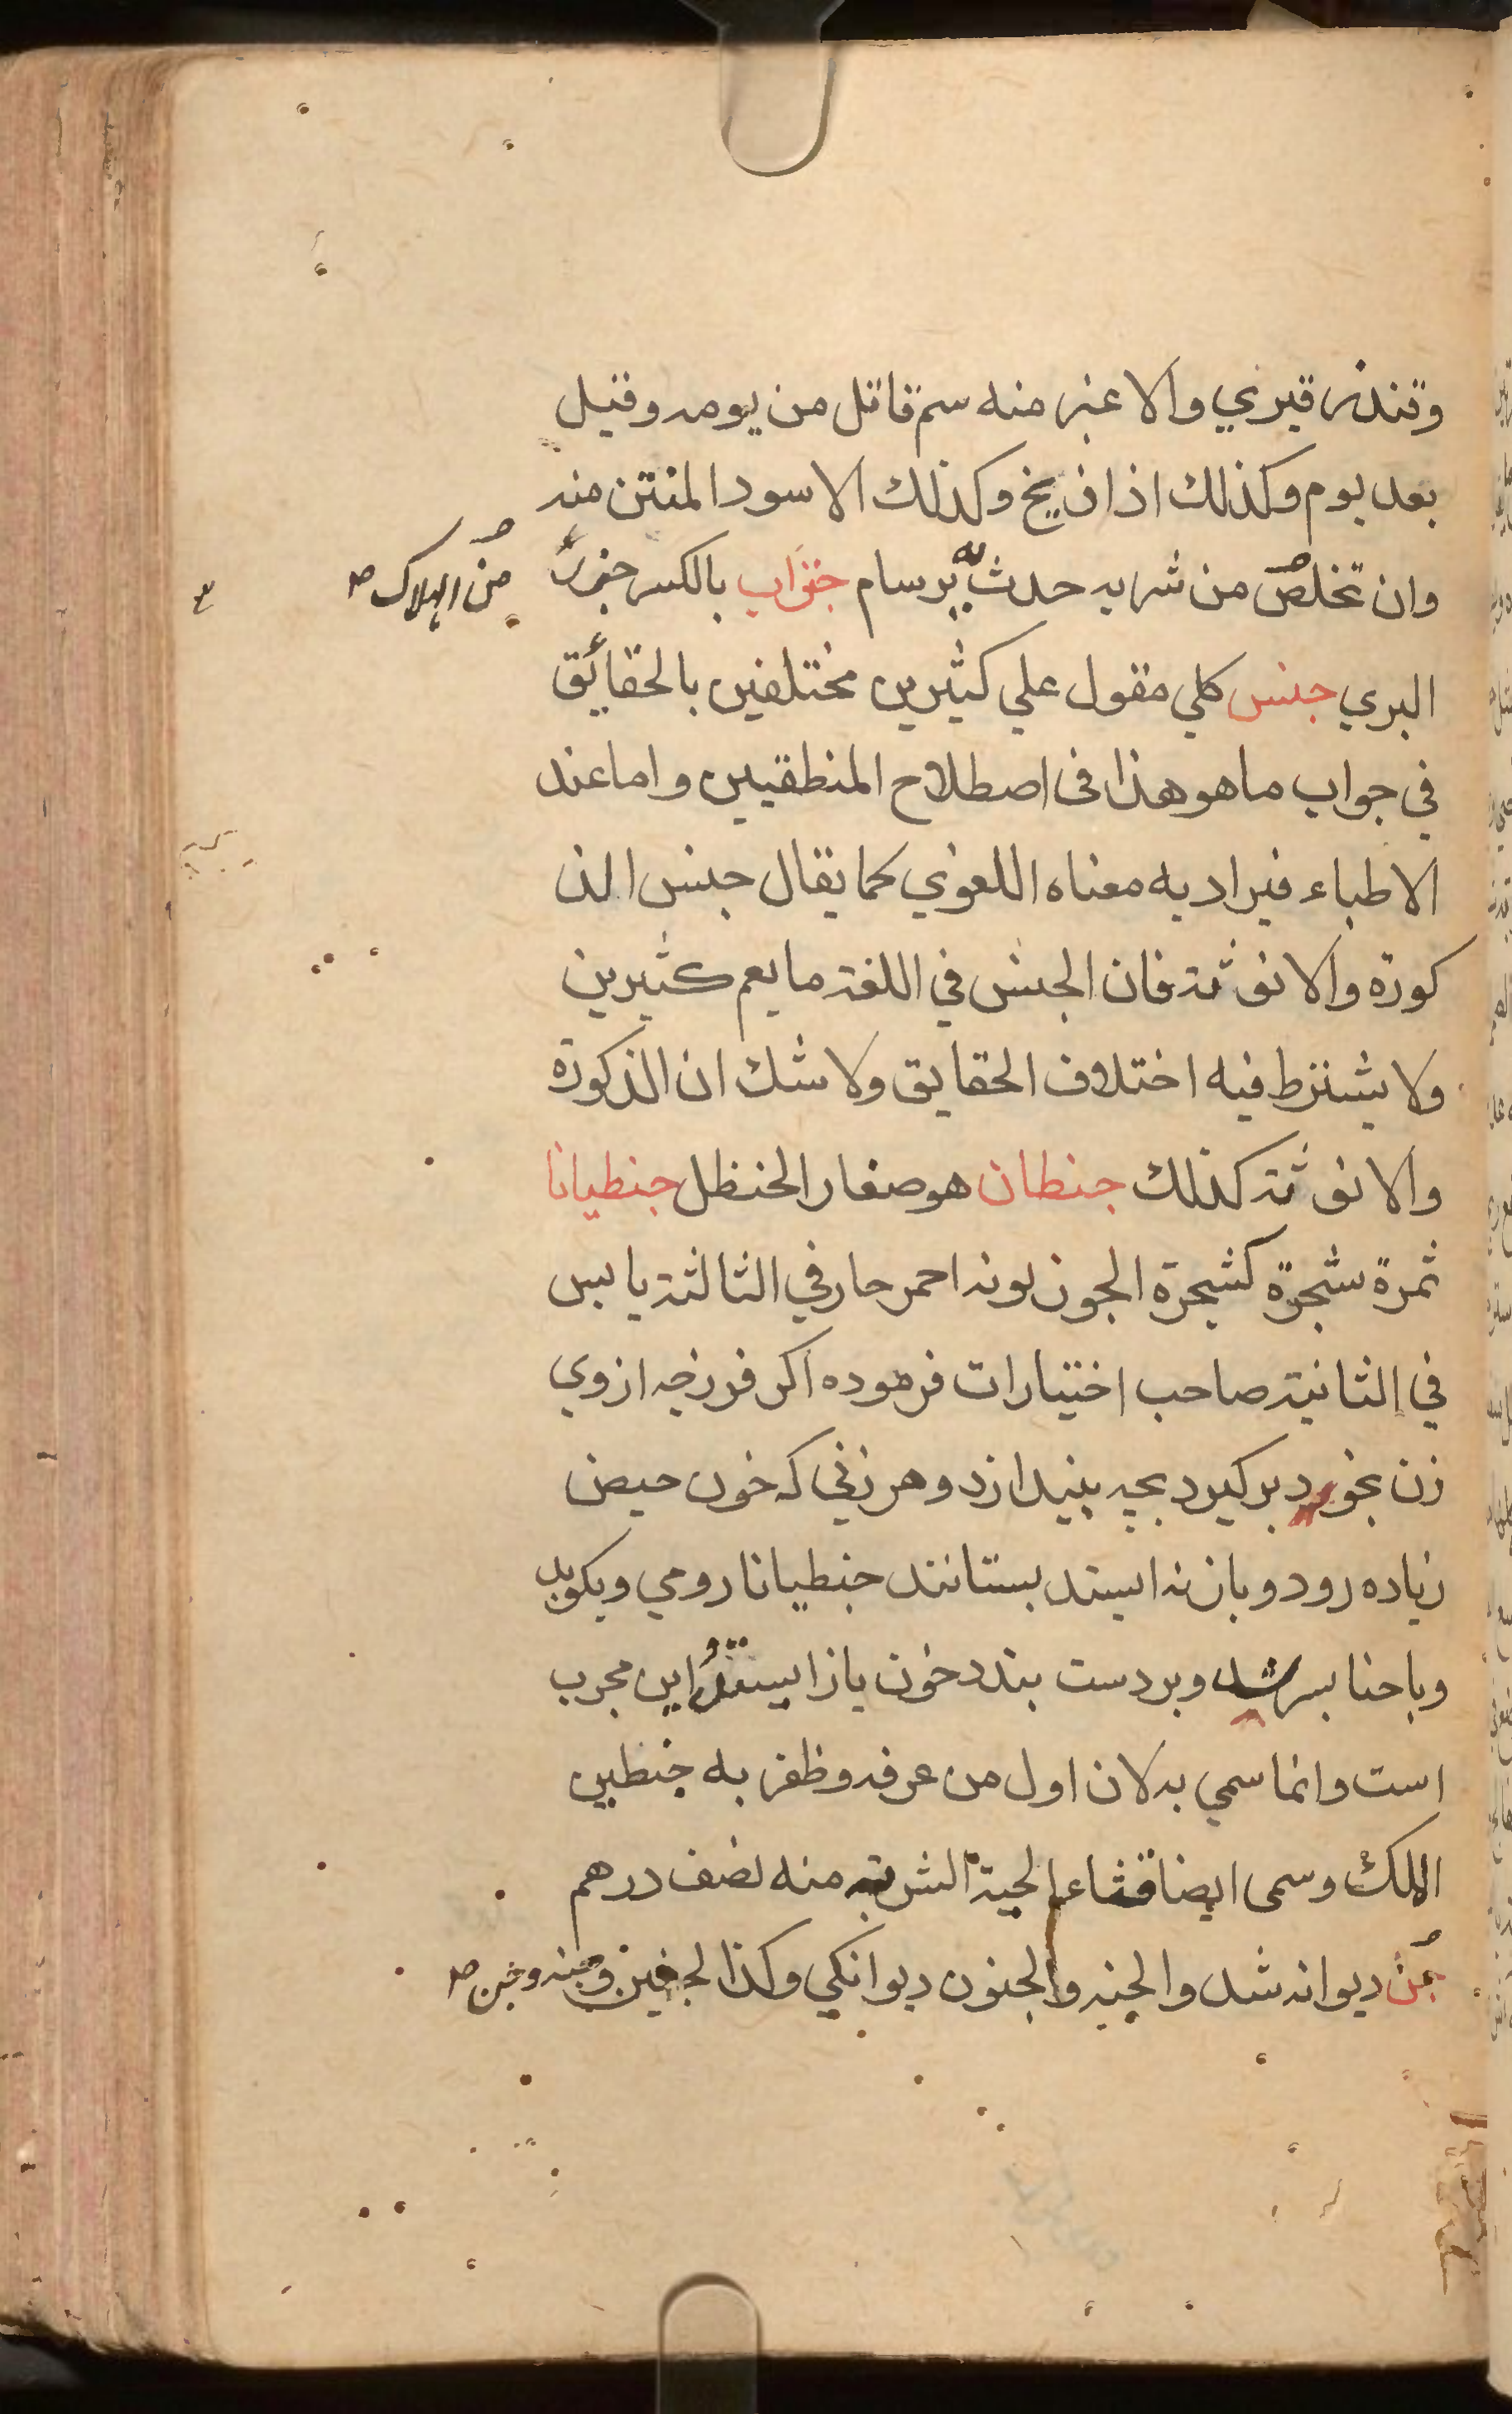 وتندر قيري والاغبر منه سم قاتل من يومه وقيل
بعد يوم وكذلك اذا زيخ وكذلك الاسود المنتن منه
وان تخلص من شربه حدث به برسام جنراب بالكسر جزر
من الهلاك صح
البري جنس كلي مقول علي كثيرين مختلفين بالحقائق
في جواب ما هو هذا فى اصطلاح المنطقيين واما عند
الاطباء فيراد به معناه اللغوي كما يقال جنس الذ
كورة والانوثة فان الجنس في اللغة ما يعم كثيرين
ولا يشترط فيه اختلاف الحقايق ولا شك ان الذكورة
والانوثة كذلك جنطان هو صغار الحنظل جنطيانا
ثمرة شجرة كشجرة الجوز لونه احمر حار في الثالثة يابس
في الثانية صاحب اختيارات فرموده اكر فرزجه ازوي
زن بخود بركيرد بچه بيندازد وهر زني كه خون حيض
زياده رود وباز نه ايستد بستانند جنطيانا رومي وبكوبد
وبا حنا بسرشد وبر دست بندد خون باز ايستد واين مجرب
است وانما سمي به لان اول من عرفه وظفر به جنطين
الملك وسمى ايضا قثاء الحية الشربة منه نصف درهم
جن ديوانه شد والجنه والجنون ديوانكي وكذا لجنين وجنه وجنن صح